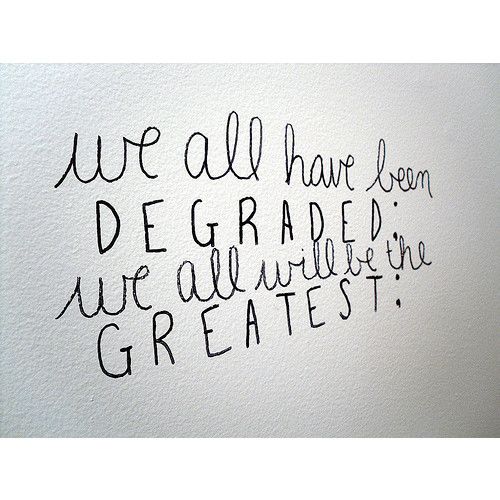 we all have been
DEGRADED;
we all will be the
GREATEST;